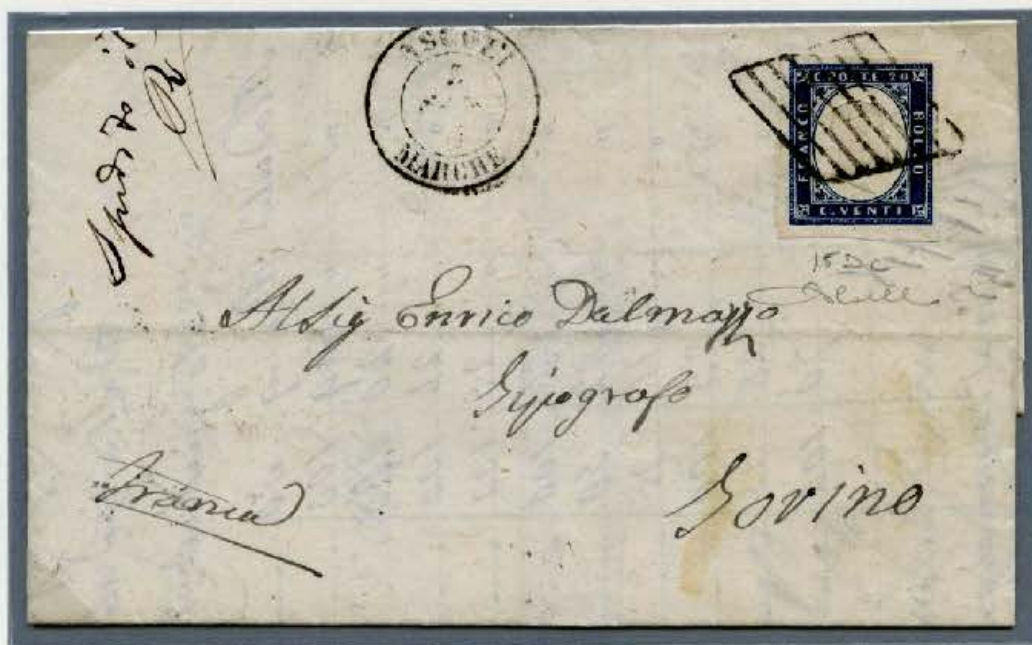 Spedito
MARCHE
C. POSTE 20
FRANCO
BOLLO
C. VENTI
15Dc
Al Sig Enrico Dalmazzo
Tipografo
Torino
Franca